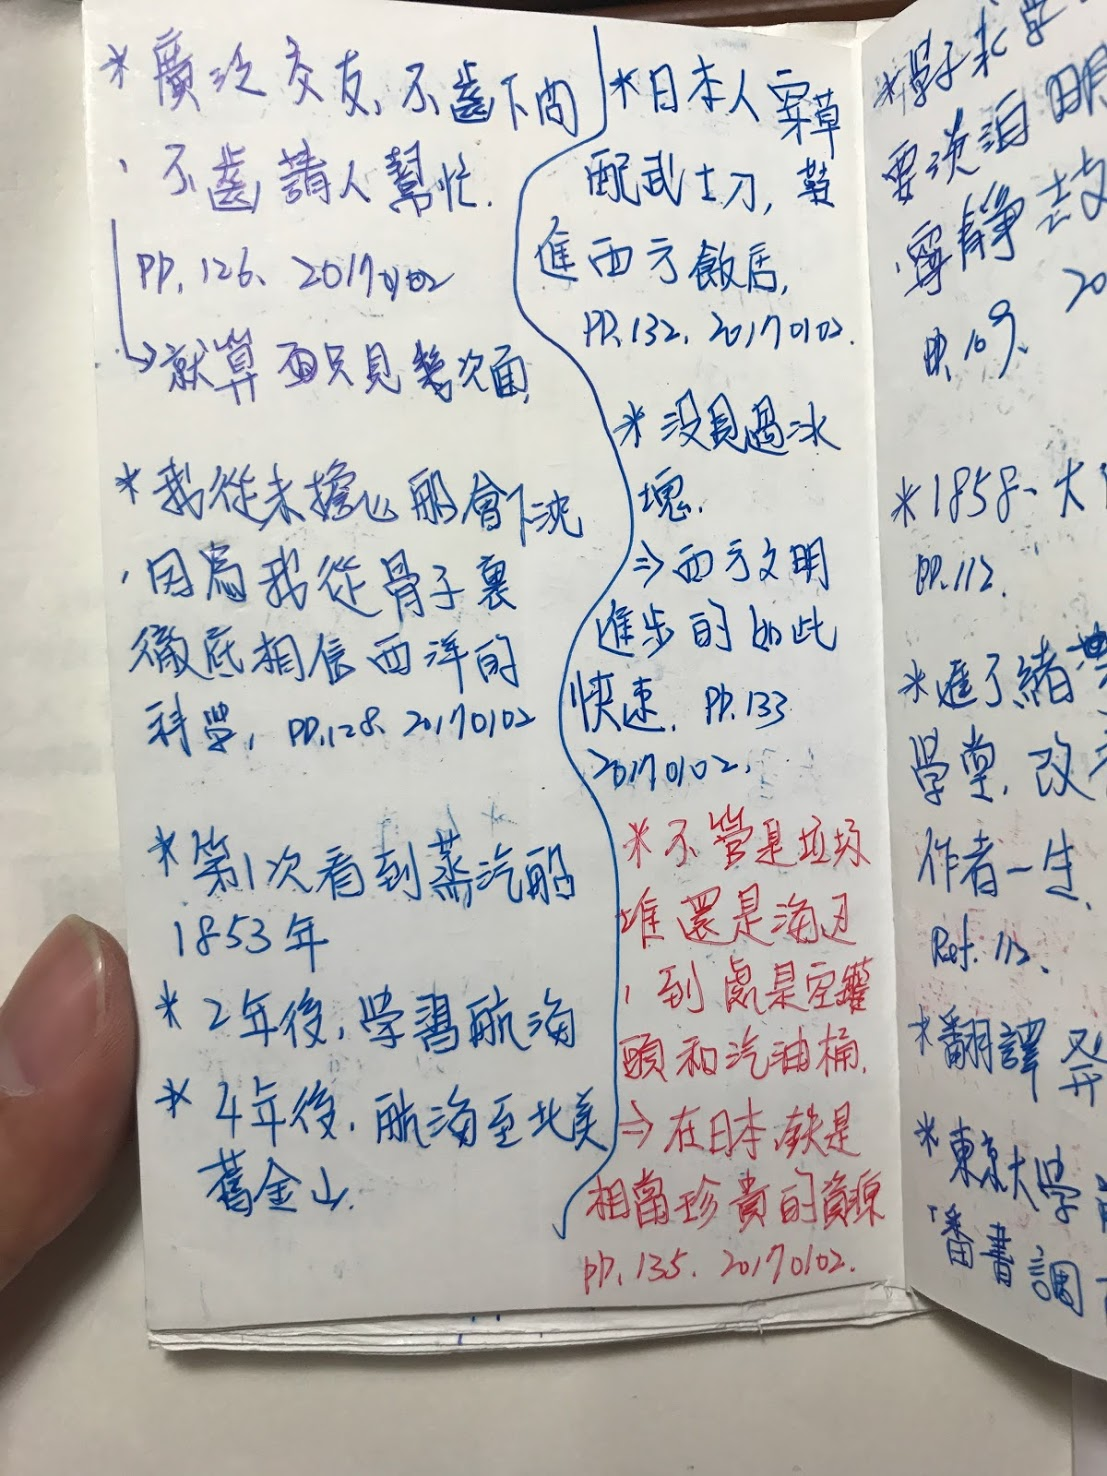 *廣泛交友、不齒下問
,不齒請人幫忙.
PP.126. 20170102
→就算面只見幾次面
*我從未擔心船會下沈
,因為我從骨子裏
徹底相信西洋的
科學, PP.128. 20170102
*第1次看到蒸汽船
1853年
*2年後,学習航海
*4年後,航海至北美
舊金山.
*日本人穿草
配武士刀,
進西方飯店,
PP.132. 20170102.
*沒見過冰
塊.
⇒西方文明
進步的如此
快速. PP.133
20170102.
*不管是垃圾
堆還是海边
,到處是空罐
頭和汽油桶.
⇒在日本,鉄是
相當珍貴的資源
PP.135. 20170102.
要
寧靜去
20
PP.109.
*1858-大
PP.112.
*進了緒
学堂.改
作者一生.
Ref. 112.
*翻譯
*東京大学
"番書調